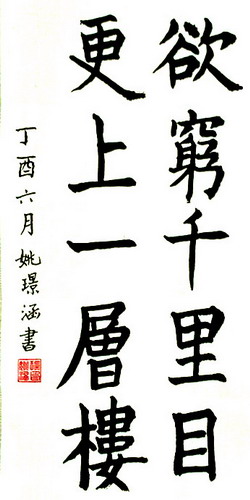 欲窮千里目
更上一層樓
丁酉六月姚璟涵書